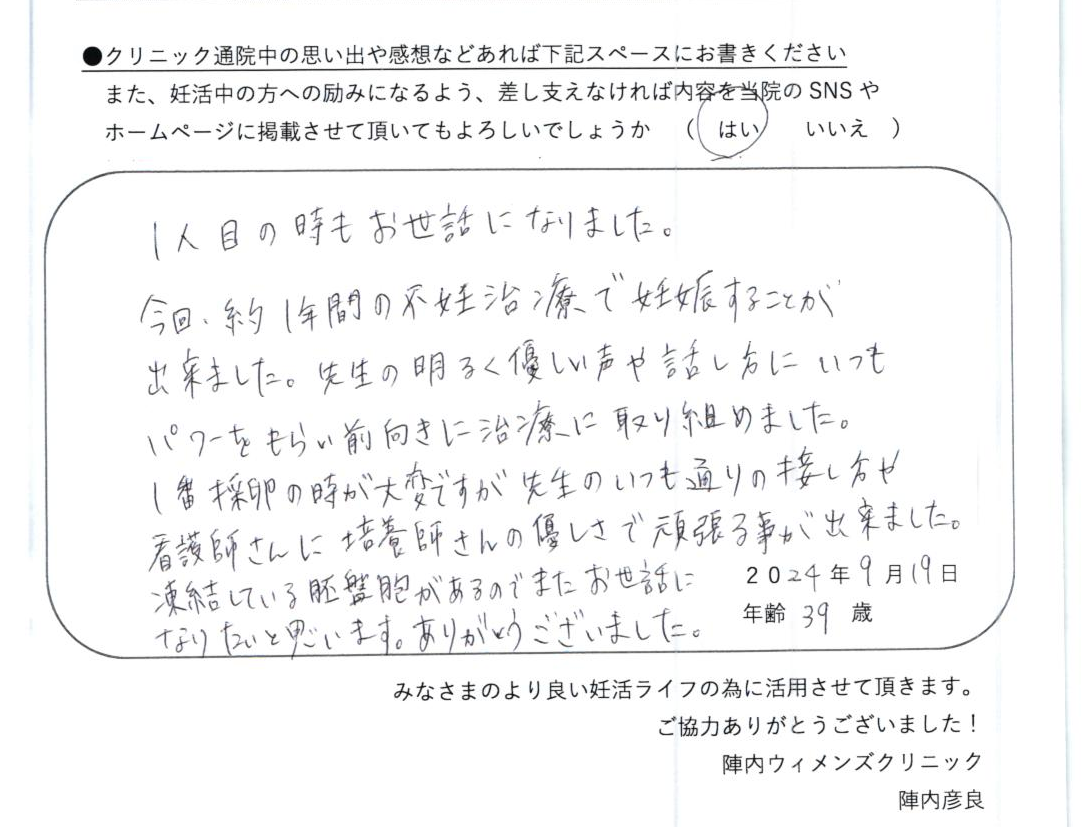 ●クリニック通院中の思い出や感想などあれば下記スペースにお書きください
また、妊活中の方への励みになるよう、差し支えなければ内容を当院の SNS や
ホームページに掲載させて頂いてもよろしいでしょうか （ はい いいえ ）
1人目の時もお世話になりました。
今回、約1年間の不妊治療で妊娠することが
出来ました。先生の明るく優しい声や話し方にいつも
パワーをもらい前向きに治療に取り組めました。
1番採卵の時が大変ですが先生のいつも通りの接し方や
看護師さんに培養師さんの優しさで頑張る事が出来ました。
凍結している胚盤胞があるのでまたお世話に
なりたいと思います。ありがとうございました。
2024年9月19日
年齢 39 歳
みなさまのより良い妊活ライフの為に活用させて頂きます。
ご協力ありがとうございました！
陣内ウィメンズクリニック
陣内彦良